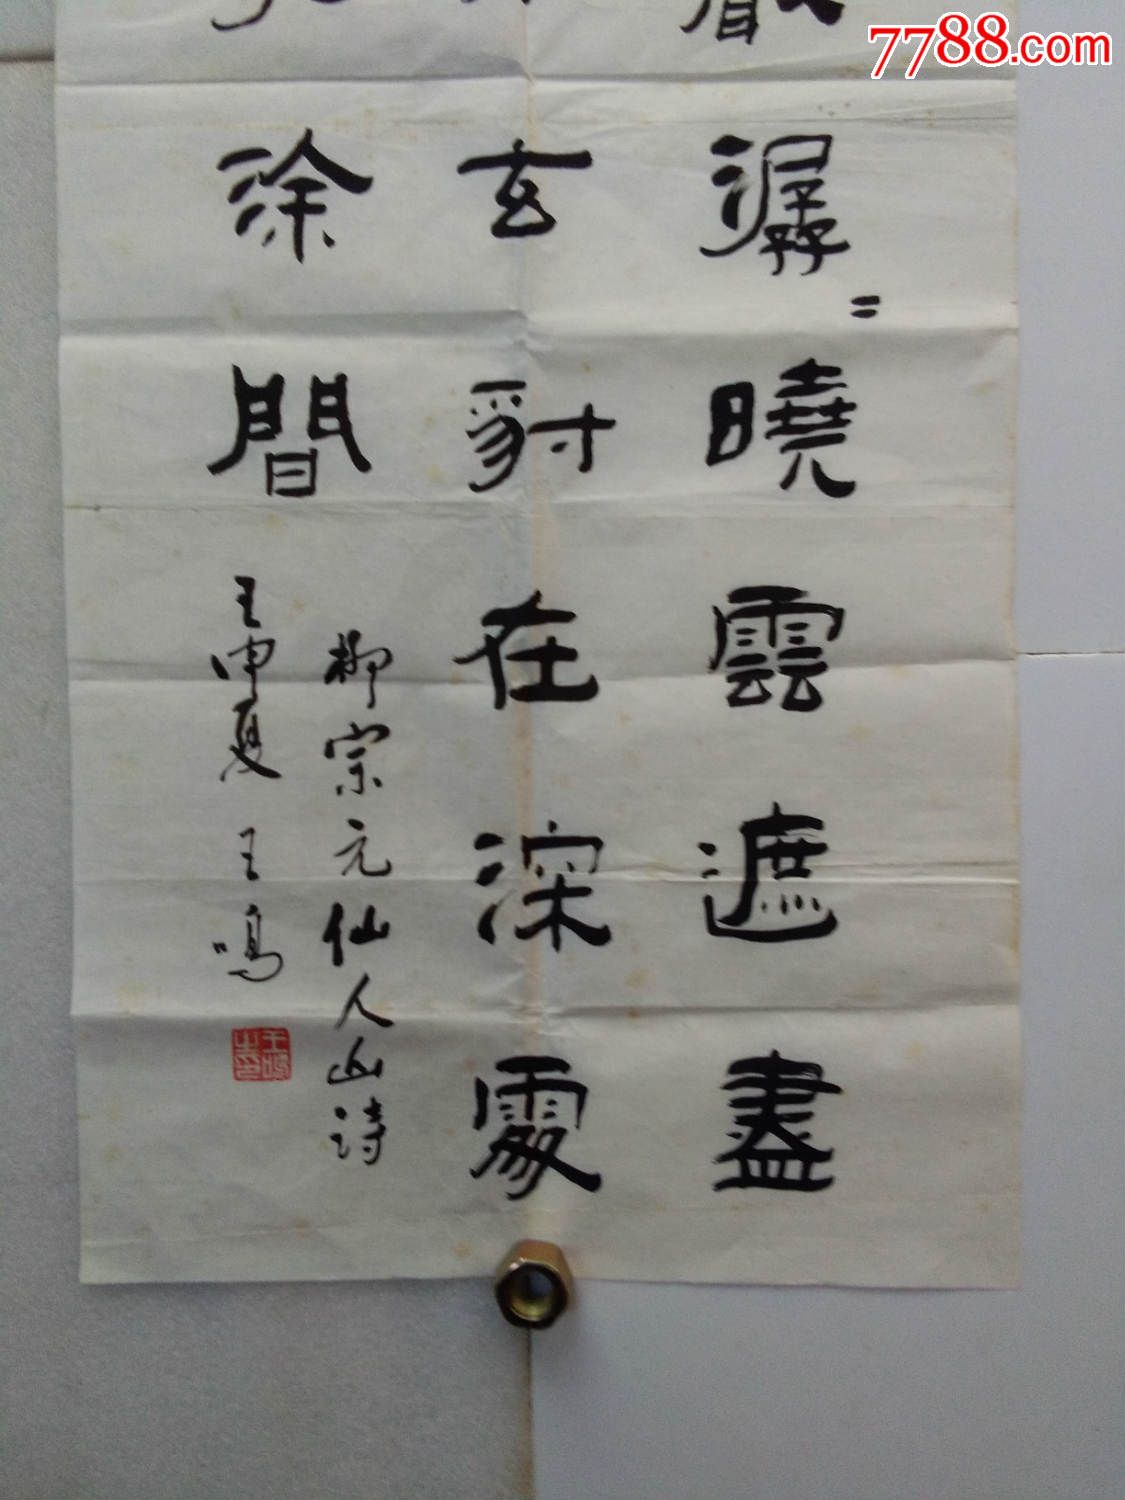 7788.com
潺〻曉雲遮盡
玄豹在深處
間
柳宗元仙人山诗
壬申夏 王鸣
王鸣之印